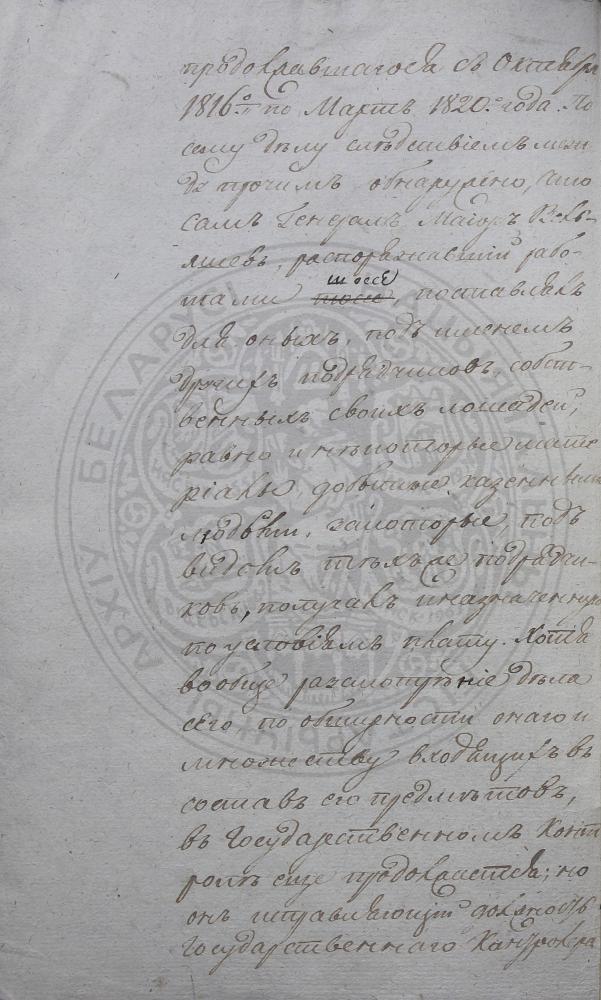 продолжавшагося съ Октября
1816го по Мартъ 1820.го года. По
сему дѣлу слѣдствіемъ меж
ду прочимъ обнаружено, что
самъ Генералъ Маіоръ Вель-
яшевъ, распоряжавшій рабо-
тами шоссе, поставлялъ
для оныхъ, подъ именемъ
другихъ подрядчиковъ собст-
венныхъ своихъ лошадей,
равно и нѣкоторые мате
ріалы добытые казенными
людьми, за которые, подъ
видомъ тѣхъ же подрядчи-
ковъ, получалъ и назначенную
по условіямъ плату. Хотя
вообще разсмотрѣніе дѣла
сего по обширности онаго и
множеству входящихъ въ
составъ его предмѣтовъ,
въ Государственномъ Конт
ролѣ еще продолжается; но
онъ исправляющій должность
Государственнаго Контролера
АРХІЎ БЕЛАРУСІ